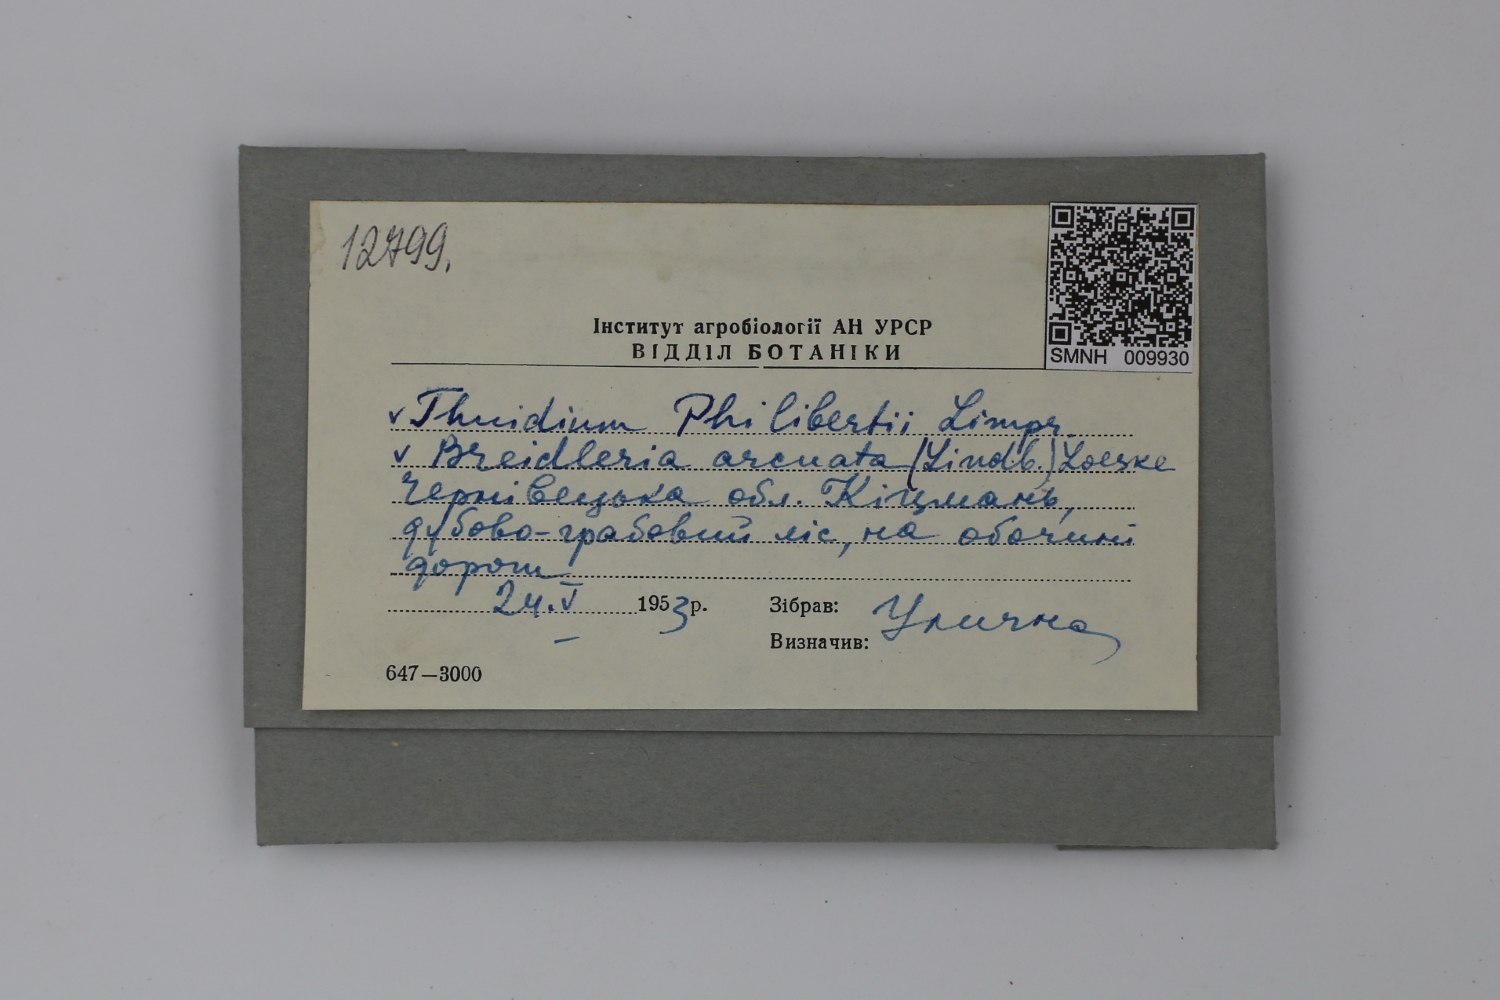 12799.
SMNH 009930
Інститут агробіології АН УРСР
ВІДДІЛ БОТАНІКИ
v Thuidium Philibertii Limpr.
v Breidleria arcuata (Lindb.) Loeske
Чернівецька обл. Кіцмань,
дубово-грабовий ліс, на обочині
дороги
24.V 1953 р. Зібрав: Улична
Визначив:
647—3000